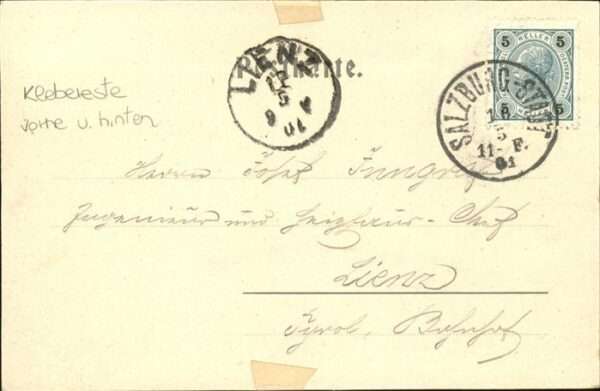 Klebereste
vorne u. hinten
Postkarte.
LIENZ
12
5
01
5 HELLER 5
5 HELLER 5
SALZBURG-STADT
5
11-F.
01
Herrn Josef
Ingenieur und Heizhaus-Chef
Lienz
Tyrol, Bahnhof